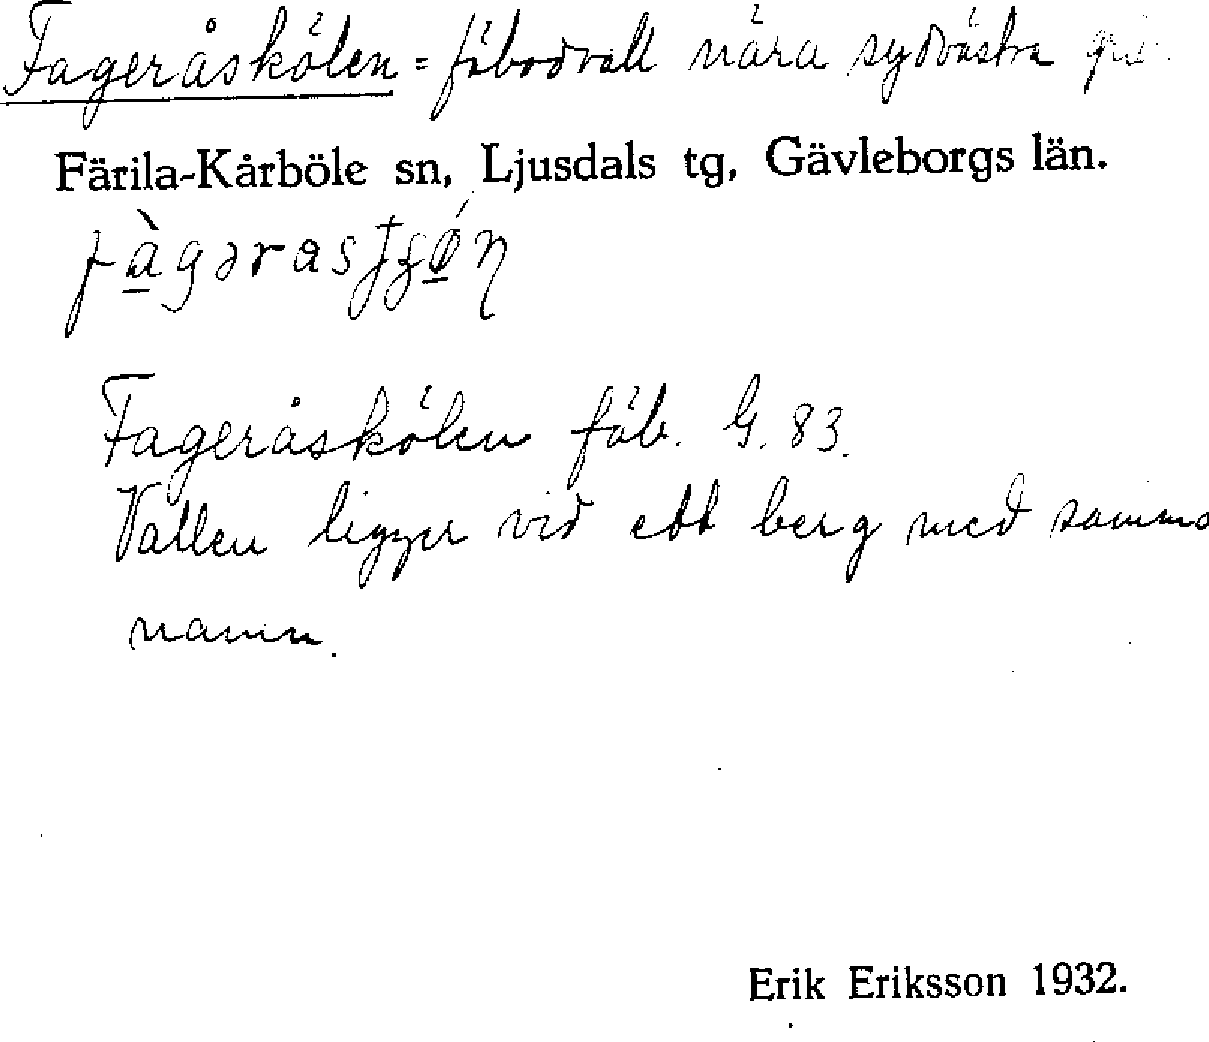 Fageråskölen = fäbodvall nära sydvästra
Färila-Kårböle sn, Ljusdals tg, Gävleborgs län.
Fageråskölen fäb. G. 83.
Vallen ligger vid ett berg med samma
namn.
Erik Eriksson 1932.